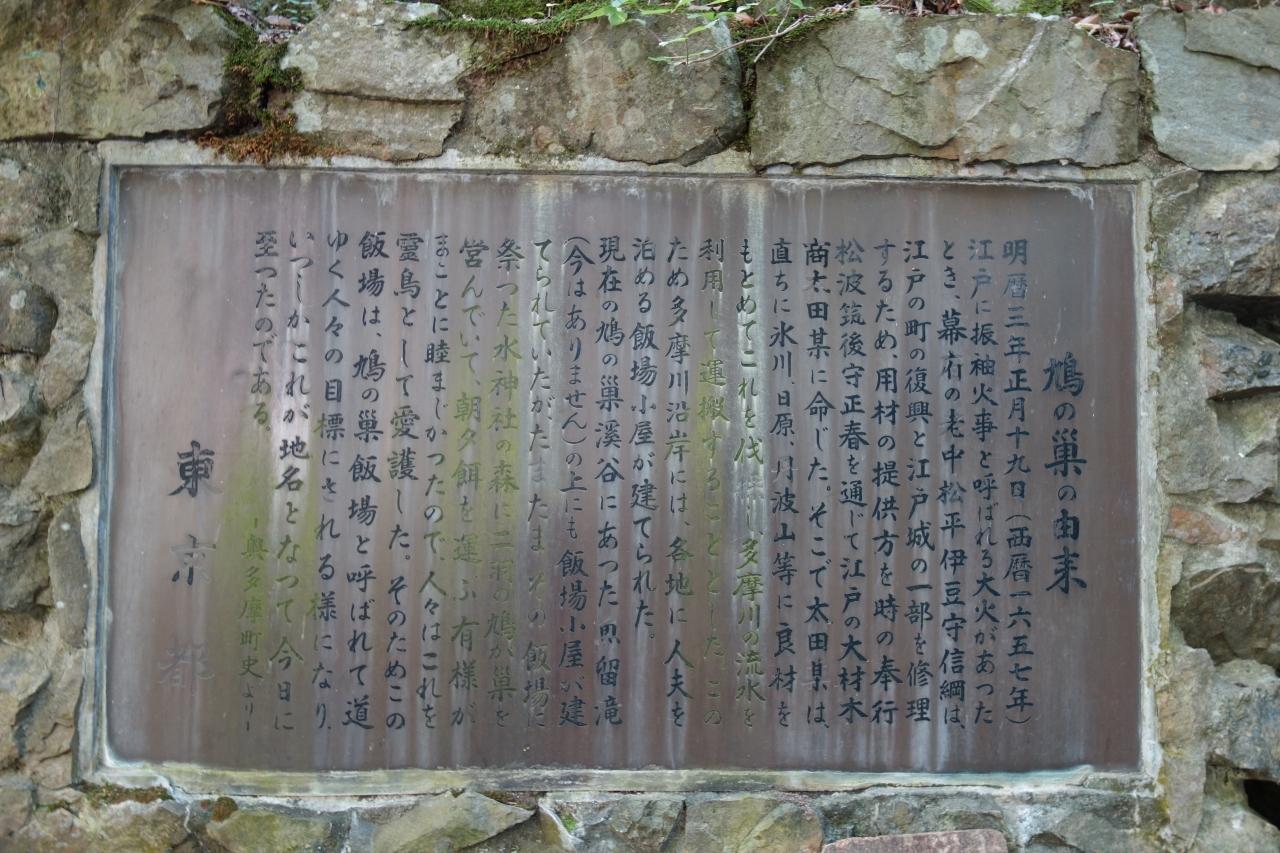 鳩の巣の由来
明暦三年正月十九日(西暦一六五七年)
江戸に振袖火事と呼ばれる大火があった
とき、幕府の老中松平伊豆守信綱は、
江戸の町の復興と江戸城の一部を修理
するため、用材の提供方を時の奉行
松波筑後守正春を通じて江戸の大材木
商太田某に命じた。そこで太田某は、
直ちに氷川、日原、丹波山等に良材を
もとめてこれを伐採し、多摩川の流水を
利用して運搬することとした。この
ため多摩川沿岸には、各地に人夫を
泊める飯場小屋が建てられた。
現在の鳩の巣渓谷にあった思留滝
(今はありません)の上にも飯場小屋が建
てられていたがたまたまその飯場に
祭った水神社の森に二羽の鳩が巣を
営んでいて、朝夕餌を運ぶ有様が
まことに睦まじかったので、人々はこれを
霊鳥として愛護した。そのためこの
飯場は、鳩の巣飯場と呼ばれて道
ゆく人々の目標にされる様になり、
いつしか、これが地名となつて今日に
至つたのである。
ー奥多摩町史よりー
東京都